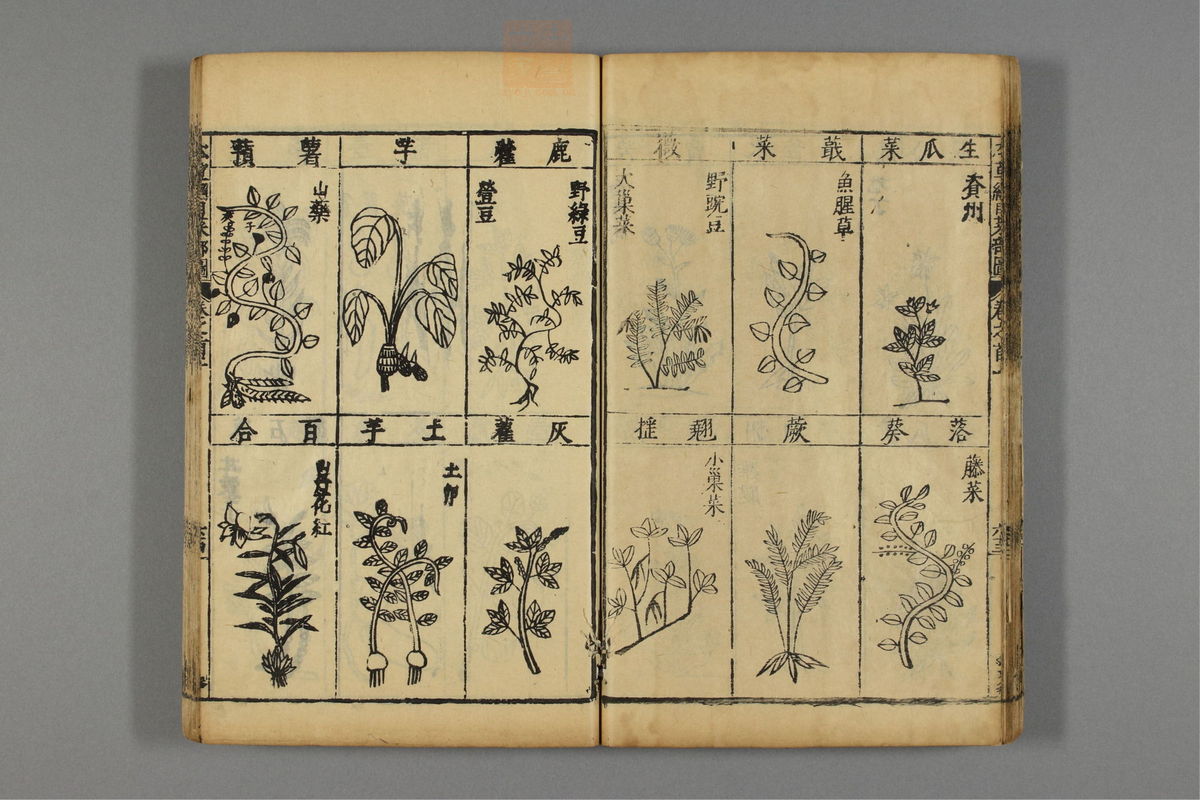 生瓜菜
資州
蕺菜
魚腥草
薇
野豌豆
大巢菜
落葵
藤菜
蕨
翹搖
小巢菜
鹿藿
野綠豆
䝁豆
芋
薯蕷
山藥
子
灰藋
土芋
土卵
百合
山丹花紅